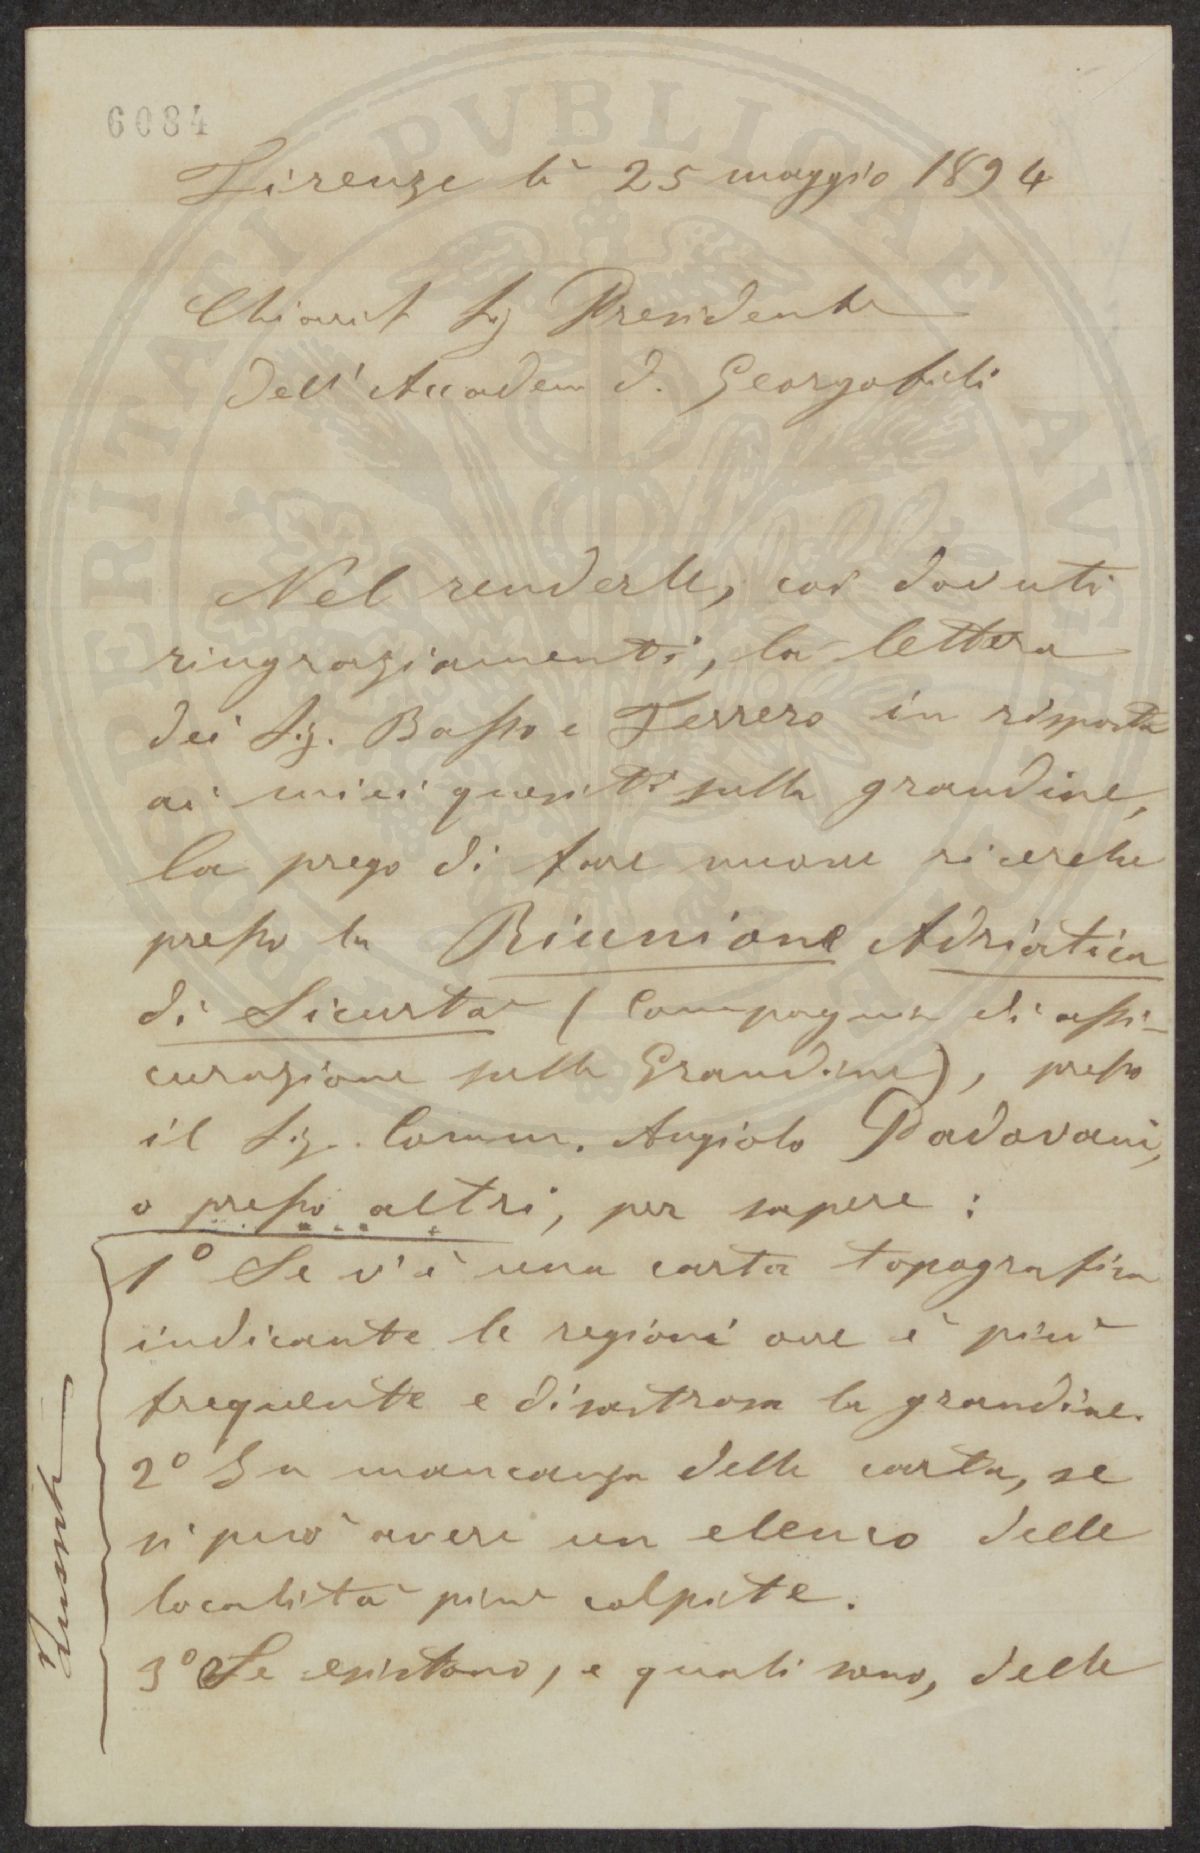 6084
Firenze li 25 maggio 1894
Chiariss Sig Presidente
dell' Accadem d. Georgofili
Nel renderle, coi dovuti
ringraziamenti, la lettera
dei Sig. Basso e Ferrero in risposta
ai miei quesiti sulla grandine,
la prego di fare nuove ricerche
presso la Riunione Adriatica
di Sicurtà (Compagnia di assi-
curazione sulla Grandine), presso
il Sig. Comm. Angiolo Padovani,
o presso altri, per sapere:
1° Se v'è una carta topografica
indicante le regioni ove è più
frequente e disastrosa la grandine.
2° In mancanza della carta, se
si può avere un elenco delle
località più colpite.
3° Se esistono, e quali sono, delle
PROSPERITATI PVBLICAE AVGENDAE